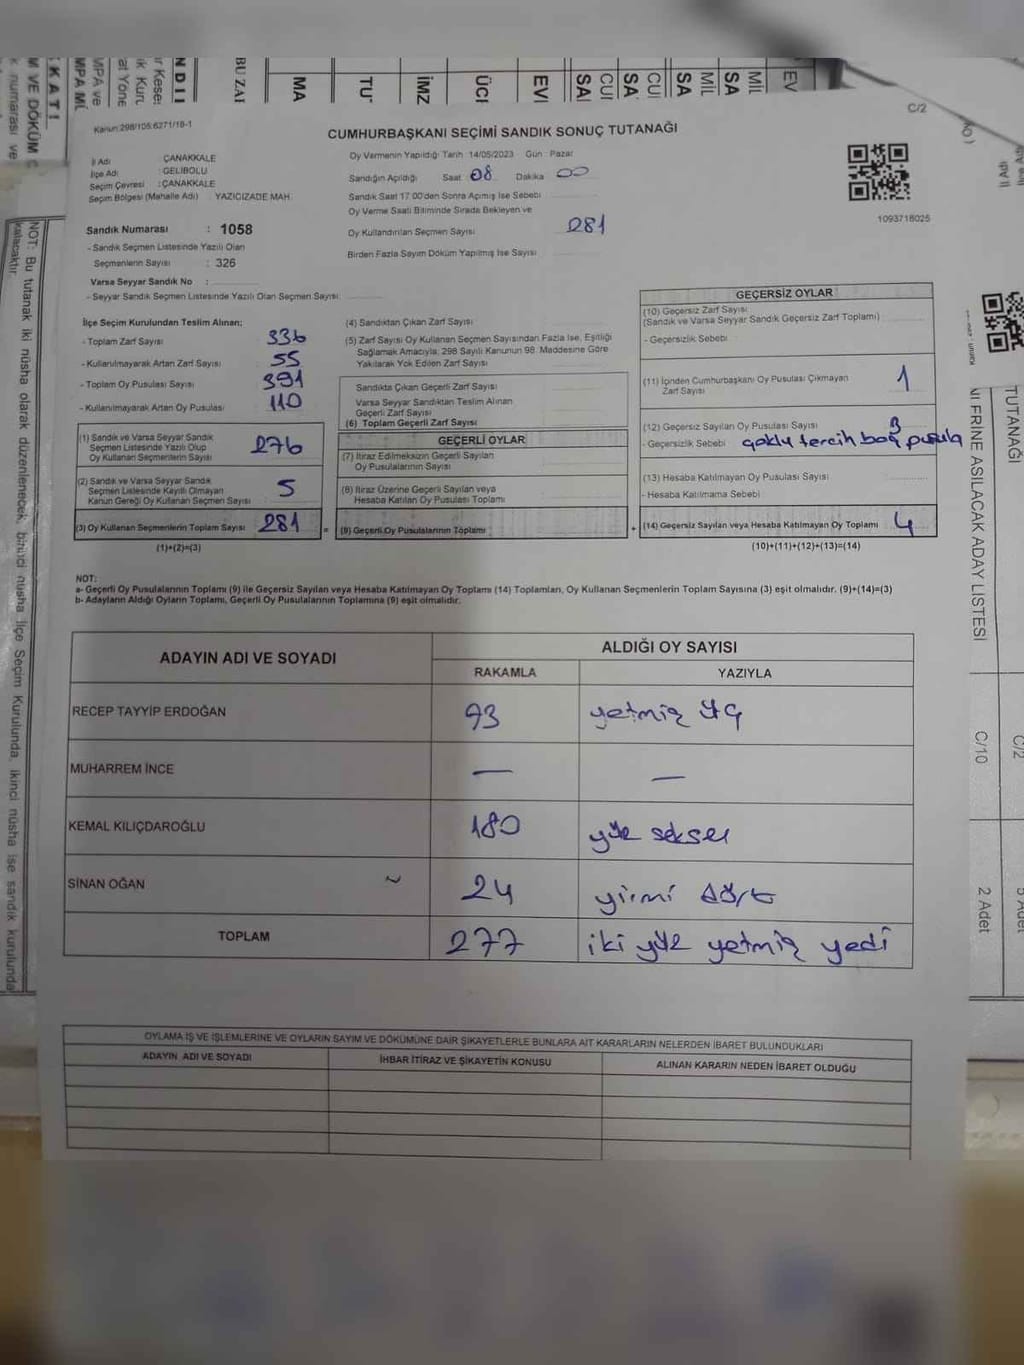 C/2
Kanun:298/105;6271/18-1
CUMHURBAŞKANI SEÇİMİ SANDIK SONUÇ TUTANAĞI
İl Adı : ÇANAKKALE
İlçe Adı : GELİBOLU
Seçim Çevresi : ÇANAKKALE
Seçim Bölgesi (Mahalle Adı) : YAZICIZADE MAH.
Sandık Numarası : 1058
- Sandık Seçmen Listesinde Yazılı Olan
Seçmenlerin Sayısı : 326
Varsa Seyyar Sandık No :
- Seyyar Sandık Seçmen Listesinde Yazılı Olan Seçmen Sayısı:
Oy Vermenin Yapıldığı Tarih 14/05/2023 Gün : Pazar
Sandığın Açıldığı Saat 08 Dakika 00
Sandık Saat 17.00'den Sonra Açımış İse Sebebi
Oy Verme Saati Bitiminde Sırada Bekleyen ve
Oy Kullandırılan Seçmen Sayısı 281
Birden Fazla Sayım Döküm Yapılmış İse Sayısı
1093718025
İlçe Seçim Kurulundan Teslim Alınan;
- Toplam Zarf Sayısı 336
- Kullanılmayarak Artan Zarf Sayısı 55
- Toplam Oy Pusulası Sayısı 391
- Kullanılmayarak Artan Oy Pusulası 110
(1) Sandık ve Varsa Seyyar Sandık
Seçmen Listesinde Yazılı Olup
Oy Kullanan Seçmenlerin Sayısı 276
(2) Sandık ve Varsa Seyyar Sandık
Seçmen Listesinde Kayıtlı Olmayan
Kanun Gereği Oy Kullanan Seçmen Sayısı 5
(3) Oy Kullanan Seçmenlerin Toplam Sayısı 281
(1)+(2)=(3)
(4) Sandıktan Çıkan Zarf Sayısı
(5) Zarf Sayısı Oy Kullanan Seçmen Sayısından Fazla İse, Eşitliği
Sağlamak Amacıyla, 298 Sayılı Kanunun 98. Maddesine Göre
Yakılarak Yok Edilen Zarf Sayısı
Sandıkta Çıkan Geçerli Zarf Sayısı
Varsa Seyyar Sandıktan Teslim Alınan
Geçerli Zarf Sayısı
(6) Toplam Geçerli Zarf Sayısı
GEÇERLİ OYLAR
(7) İtiraz Edilmeksizin Geçerli Sayılan
Oy Pusulalarının Sayısı
(8) İtiraz Üzerine Geçerli Sayılan veya
Hesaba Katılan Oy Pusulası Toplamı
= (9) Geçerli Oy Pusulalarının Toplamı
GEÇERSİZ OYLAR
(10) Geçersiz Zarf Sayısı
(Sandık ve Varsa Seyyar Sandık Geçersiz Zarf Toplamı)
- Geçersizlik Sebebi
(11) İçinden Cumhurbaşkanı Oy Pusulası Çıkmayan
Zarf Sayısı 1
(12) Geçersiz Sayılan Oy Pusulası Sayısı 3
- Geçersizlik Sebebi çoklu tercih boş pusula
(13) Hesaba Katılmayan Oy Pusulası Sayısı
- Hesaba Katılmama Sebebi
+ (14) Geçersiz Sayılan veya Hesaba Katılmayan Oy Toplamı 4
(10)+(11)+(12)+(13)=(14)
NOT:
a- Geçerli Oy Pusulalarının Toplamı (9) ile Geçersiz Sayılan veya Hesaba Katılmayan Oy Toplamı (14) Toplamları, Oy Kullanan Seçmenlerin Toplam Sayısına (3) eşit olmalıdır. (9)+(14)=(3)
b- Adayların Aldığı Oyların Toplamı, Geçerli Oy Pusulalarının Toplamına (9) eşit olmalıdır.
ADAYIN ADI VE SOYADI
ALDIĞI OY SAYISI
RAKAMLA YAZIYLA
RECEP TAYYİP ERDOĞAN 73 yetmiş üç
MUHARREM İNCE — —
KEMAL KILIÇDAROĞLU 180 yüz seksen
SİNAN OĞAN 24 yirmi dört
TOPLAM 277 iki yüz yetmiş yedi
OYLAMA İŞ VE İŞLEMLERİNE VE OYLARIN SAYIM VE DÖKÜMÜNE DAİR ŞİKAYETLERLE BUNLARA AİT KARARLARIN NELERDEN İBARET BULUNDUKLARI
ADAYIN ADI VE SOYADI İHBAR İTİRAZ VE ŞİKAYETİN KONUSU ALINAN KARARIN NEDEN İBARET OLDUĞU
NOT: Bu tutanak iki nüsha olarak düzenlenecek, birinci nüsha İlçe Seçim Kurulunda, ikinci nüsha ise sandık kurulunda
kalacaktır.
TUTANAĞI
ASILACAK ADAY LİSTESİ
C/10
2 Adet
C/2